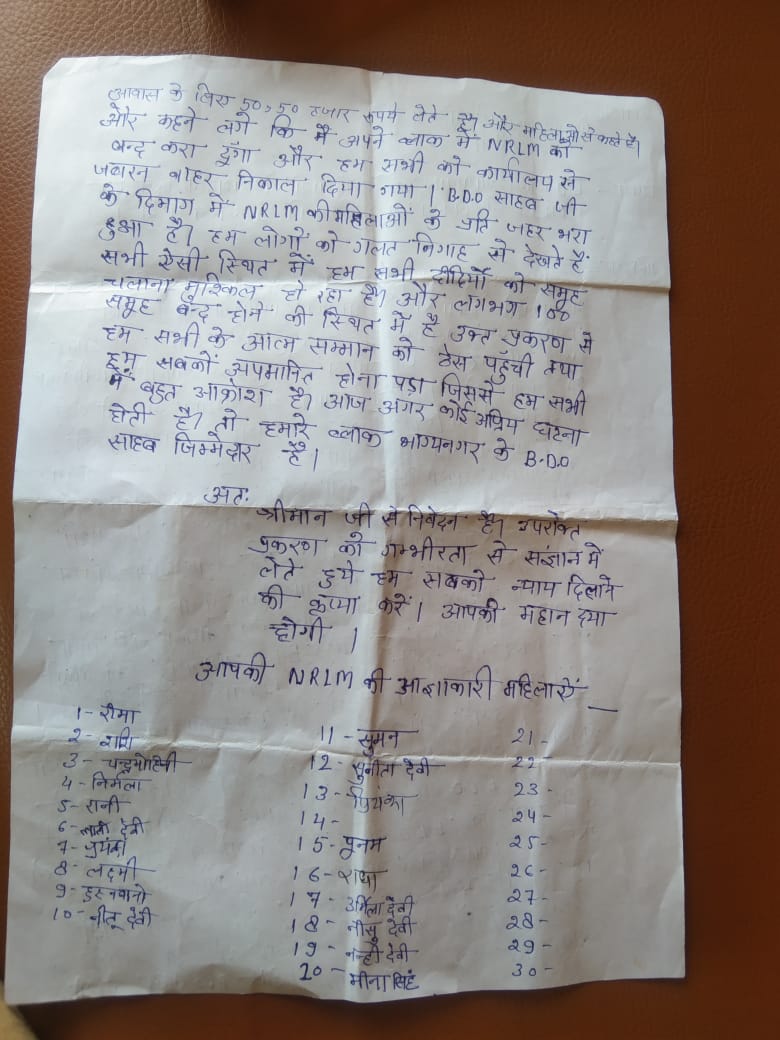 आवास के लिए 50,50 हजार रुपये लेते है, और महिलाओ से कहते है।
और कहने लगे कि मैं अपने ब्लाक में NRLM को
बन्द करा दूँगा और हम सभी को कार्यालय से
जबरन बाहर निकाल दिया गया। B.D.O साहब जी
के दिमाग में NRLM की महिलाओं के प्रति जहर भरा
हुआ है। हम लोगों को गलत निगाह से देखते हैं
सभी ऐसी स्थित में हम सभी दीदियों को समूह
चलाना मुश्किल हो रहा है। और लगभग 100
समूह बन्द होने की स्थित में है उक्त प्रकरण से
हम सभी के आत्म सम्मान को ठेस पहुँची तथा
हम सबकों अपमानित होना पड़ा जिससे हम सभी
में बहुत आक्रोश है। आज अगर कोई अप्रिय घटना
होती है। तो हमारे ब्लाक भाग्यनगर के B.D.O
साहब जिम्मेदार है।
अतः
श्रीमान जी से निवेदन है। उपरोक्त
प्रकरण को गम्भीरता से संज्ञान में
लेते हुये हम सबको न्याय दिलाने
की कृप्या करें। आपकी महान दया
होगी।
आपकी NRLM की आज्ञाकारी महिलाऐं —
1- रीमा
2- शशि
3- चन्द्रमोहिनी
4- निर्मला
5- रानी
6- देवी
7-
8- लक्ष्मी
9- हुस्नबानो
10- नीलू देवी
11- सुमन
12- सुनीता देवी
13- प्रियंका
14-
15- पूनम
16- राधा
17- उर्मिला देवी
18- नीसु देवी
19- नन्ही देवी
20- मीना सिंह
21-
22-
23-
24-
25-
26-
27-
28-
29-
30-